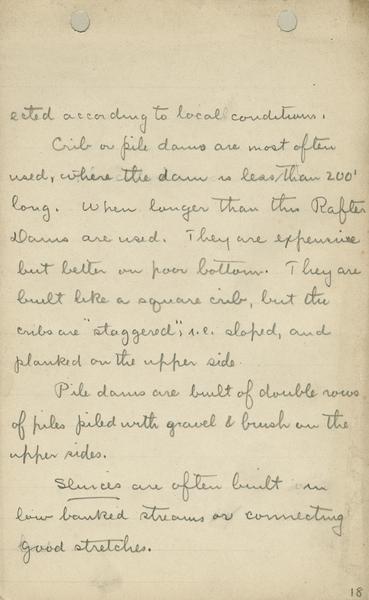 ected according to local conditions.
Crib or pile dams are most often
used, where the dam is less than 200'
long. When longer than this Rafter
Dams are used. They are expensive
but better on poor bottom. They are
built like a square crib, but the
cribs are "staggered"; i.e. sloped, and
planked on the upper side.
Pile dams are built of double rows
of piles piled with gravel & brush on the
upper sides.
Sluices are often built on
low banked streams or connecting
good stretches.
18